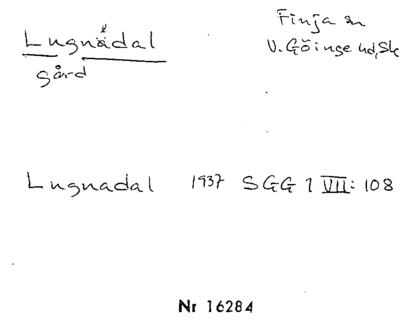 Lugnådal
gård
Finja sn
V. Göinge hd, Sk
Lugnadal 1937 SGG 1 VII: 108
Nr 16284